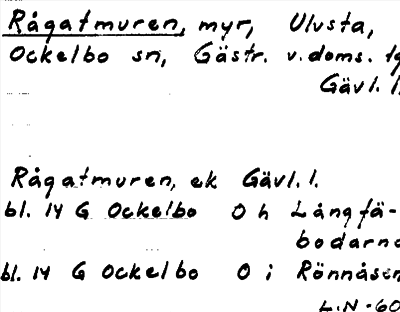 Rågatmuren, myr, Ulvsta,
Ockelbo sn, Gästr. v. doms.
Gävl. l.
Rågatmuren, ek Gävl. l.
bl. 14 G Ockelbo 0 h Långfä-
bodarna
bl. 14 G Ockelbo 0 i Rönnåsen
L.N -60